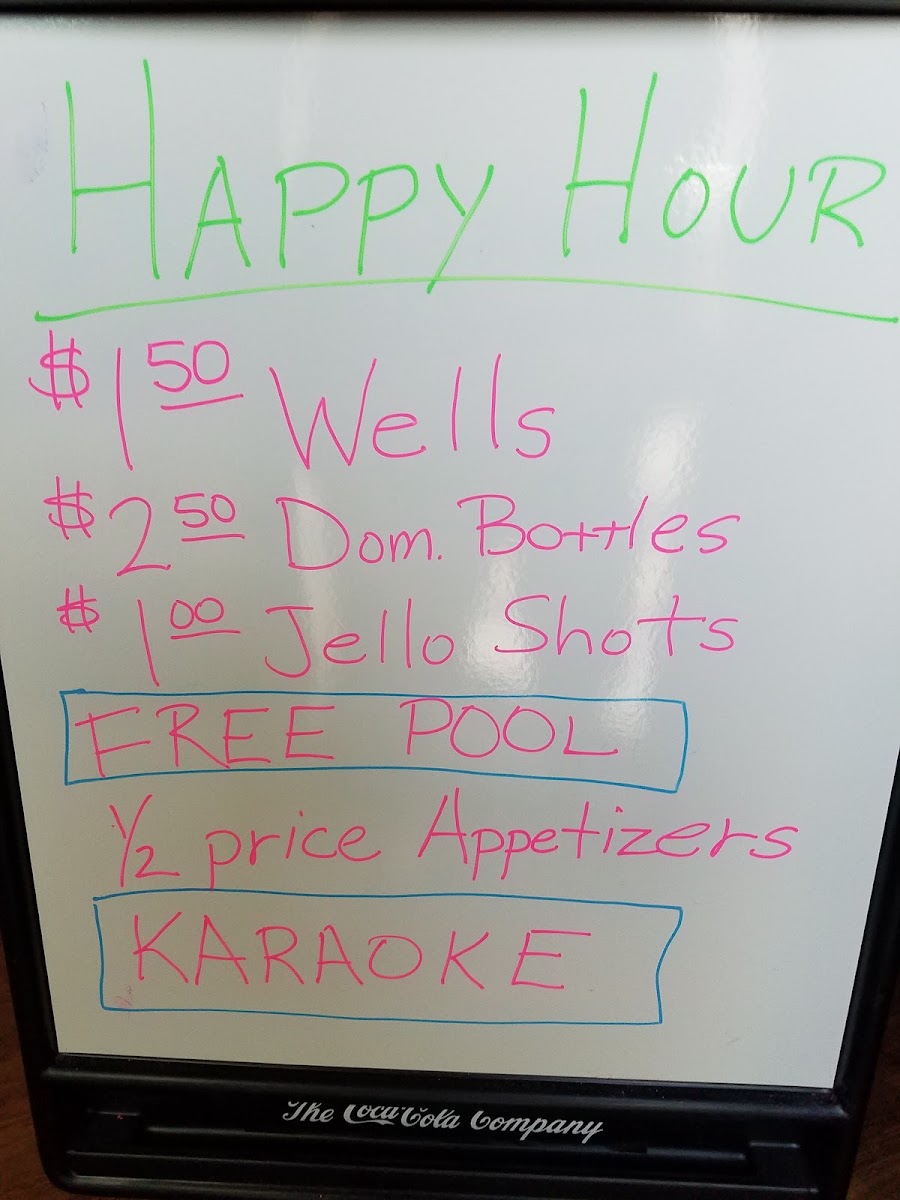 HAPPY HOUR
$1.50 Wells
$2.50 Dom. Bottles
$1.00 Jello Shots
FREE POOL
1/2 price Appetizers
KARAOKE
The Coca-Cola Company